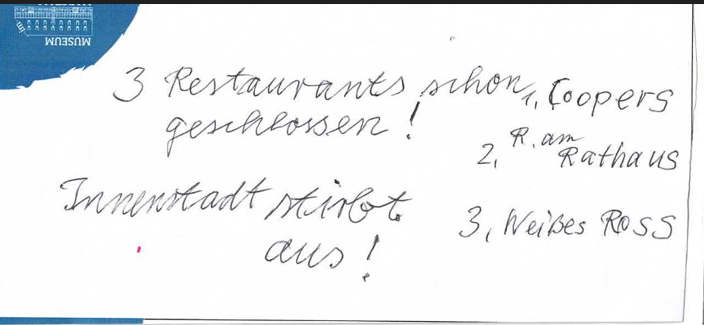 MUSEUM
3 Restaurants schon
geschlossen!
Innenstadt stirbt
aus!
1, Coopers
2, R. am
Rathaus
3, Weißes Ross